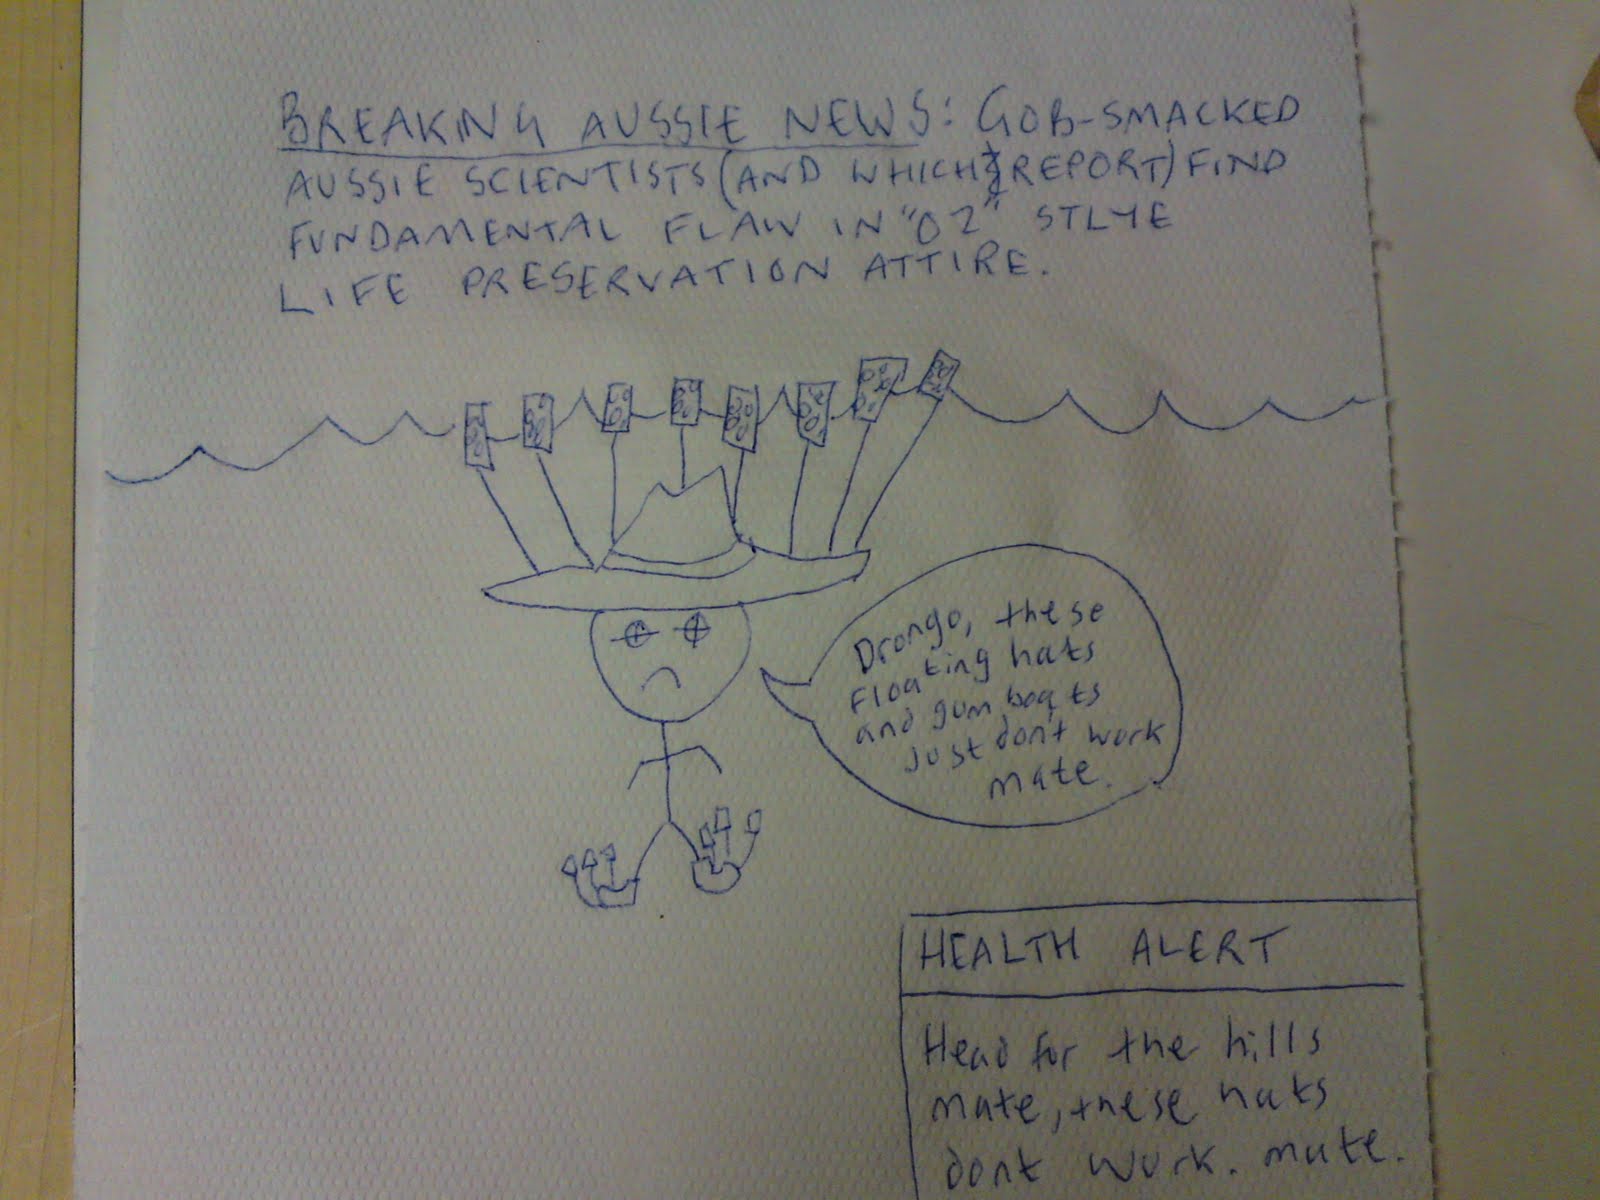 BREAKING AUSSIE NEWS: GOB-SMACKED
AUSSIE SCIENTISTS (AND WHICH? REPORT) FIND
FUNDAMENTAL FLAW IN "OZ" STLYE
LIFE PRESERVATION ATTIRE.
Drongo, these
floating hats
and gum boots
just dont work
mate.
HEALTH ALERT
Head for the hills
mate, these hats
dont work. mate.